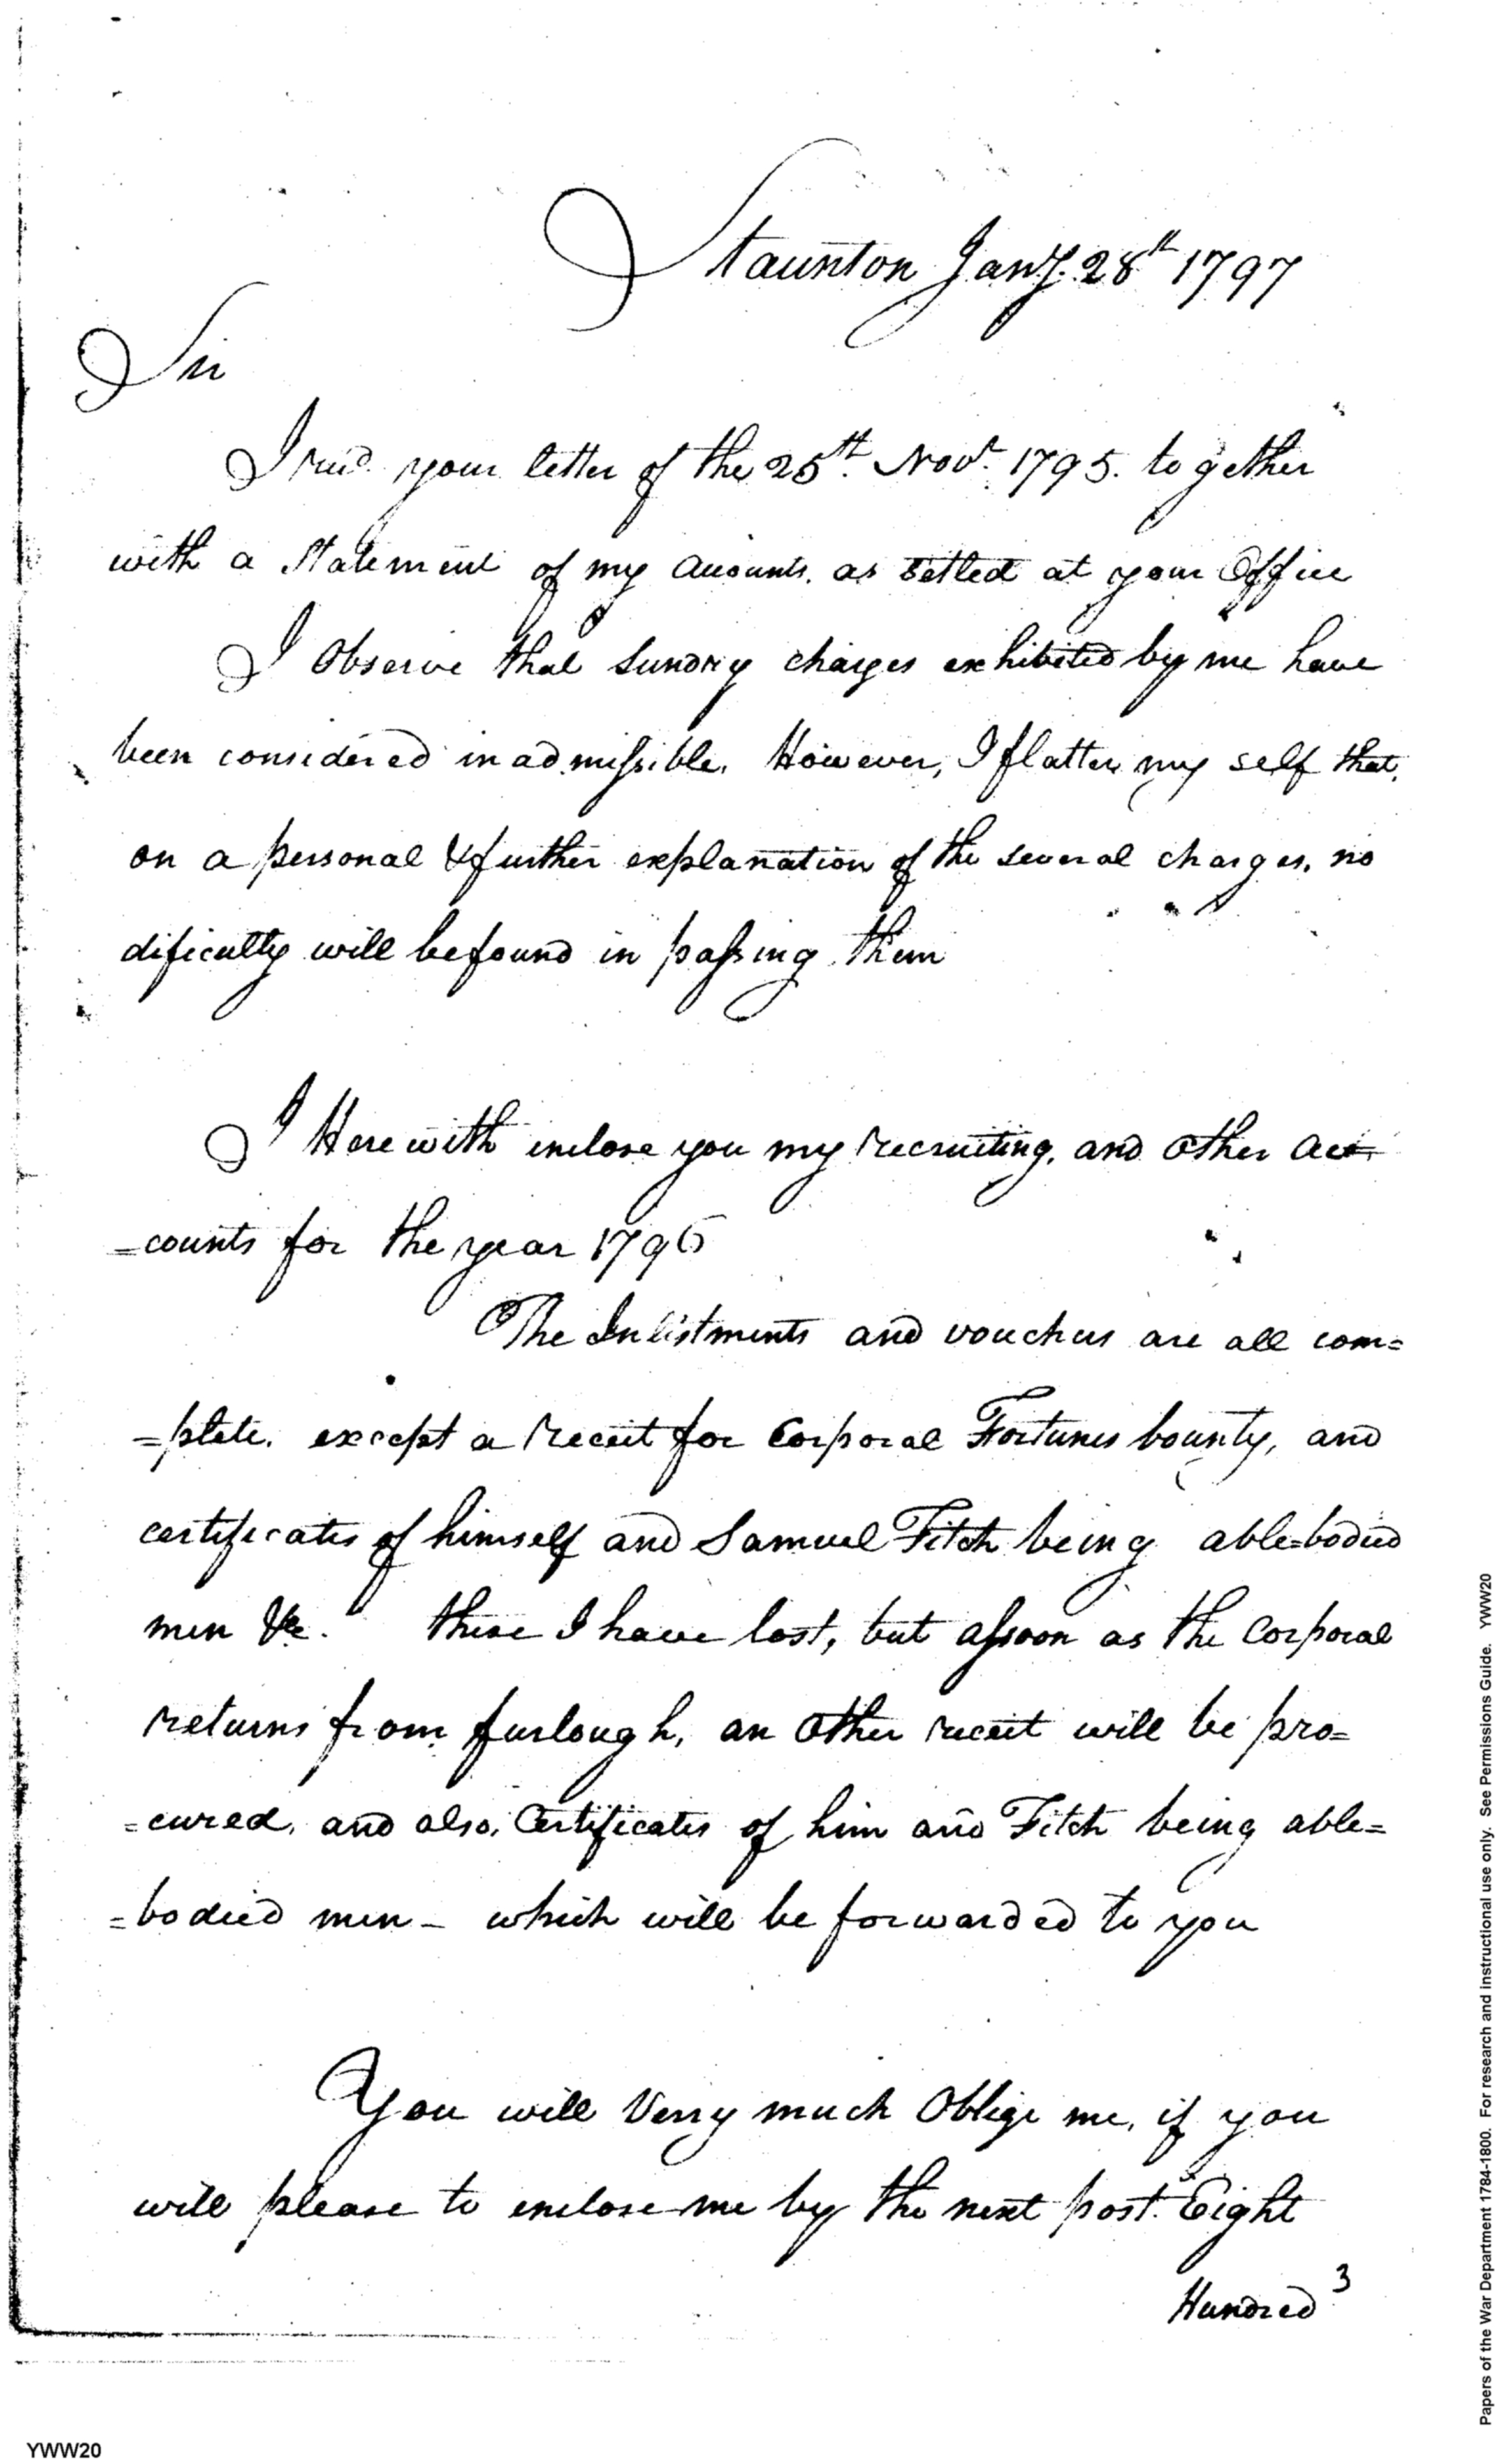 Staunton Jany. 28th 1797
Sir
I recd. your letter of the 25th. Novr. 1795. to gether
with a Statement of my accounts. as settled at your Office
I Observe that Sundry charges exhibited by me have
been considered inadmissible. However, I flatter my self that,
on a personal & further explanation of the several charges, no
dificulty will be found in passing them
I Herewith inclose you my recruiting, and other ac-
=counts for the year 1796
The Inlistments and vouchers are all com=
=plete. except a receit for Corporal Fortunes bounty, and
certificates of himself and Samuel Fitch being able=bodied
men &c. these I have lost, but assoon as the Corporal
returns from furlough, an other receit will be pro=
=cured, and also, Certificates of him and Fitch being able=
=bodied men – which will be forwarded to you
You will Verry much Oblige me, if you
will please to enclose me by the next post. Eight
Hundred
3
Papers of the War Department 1784-1800. For research and instructional use only. See Permissions Guide. YWW20
YWW20